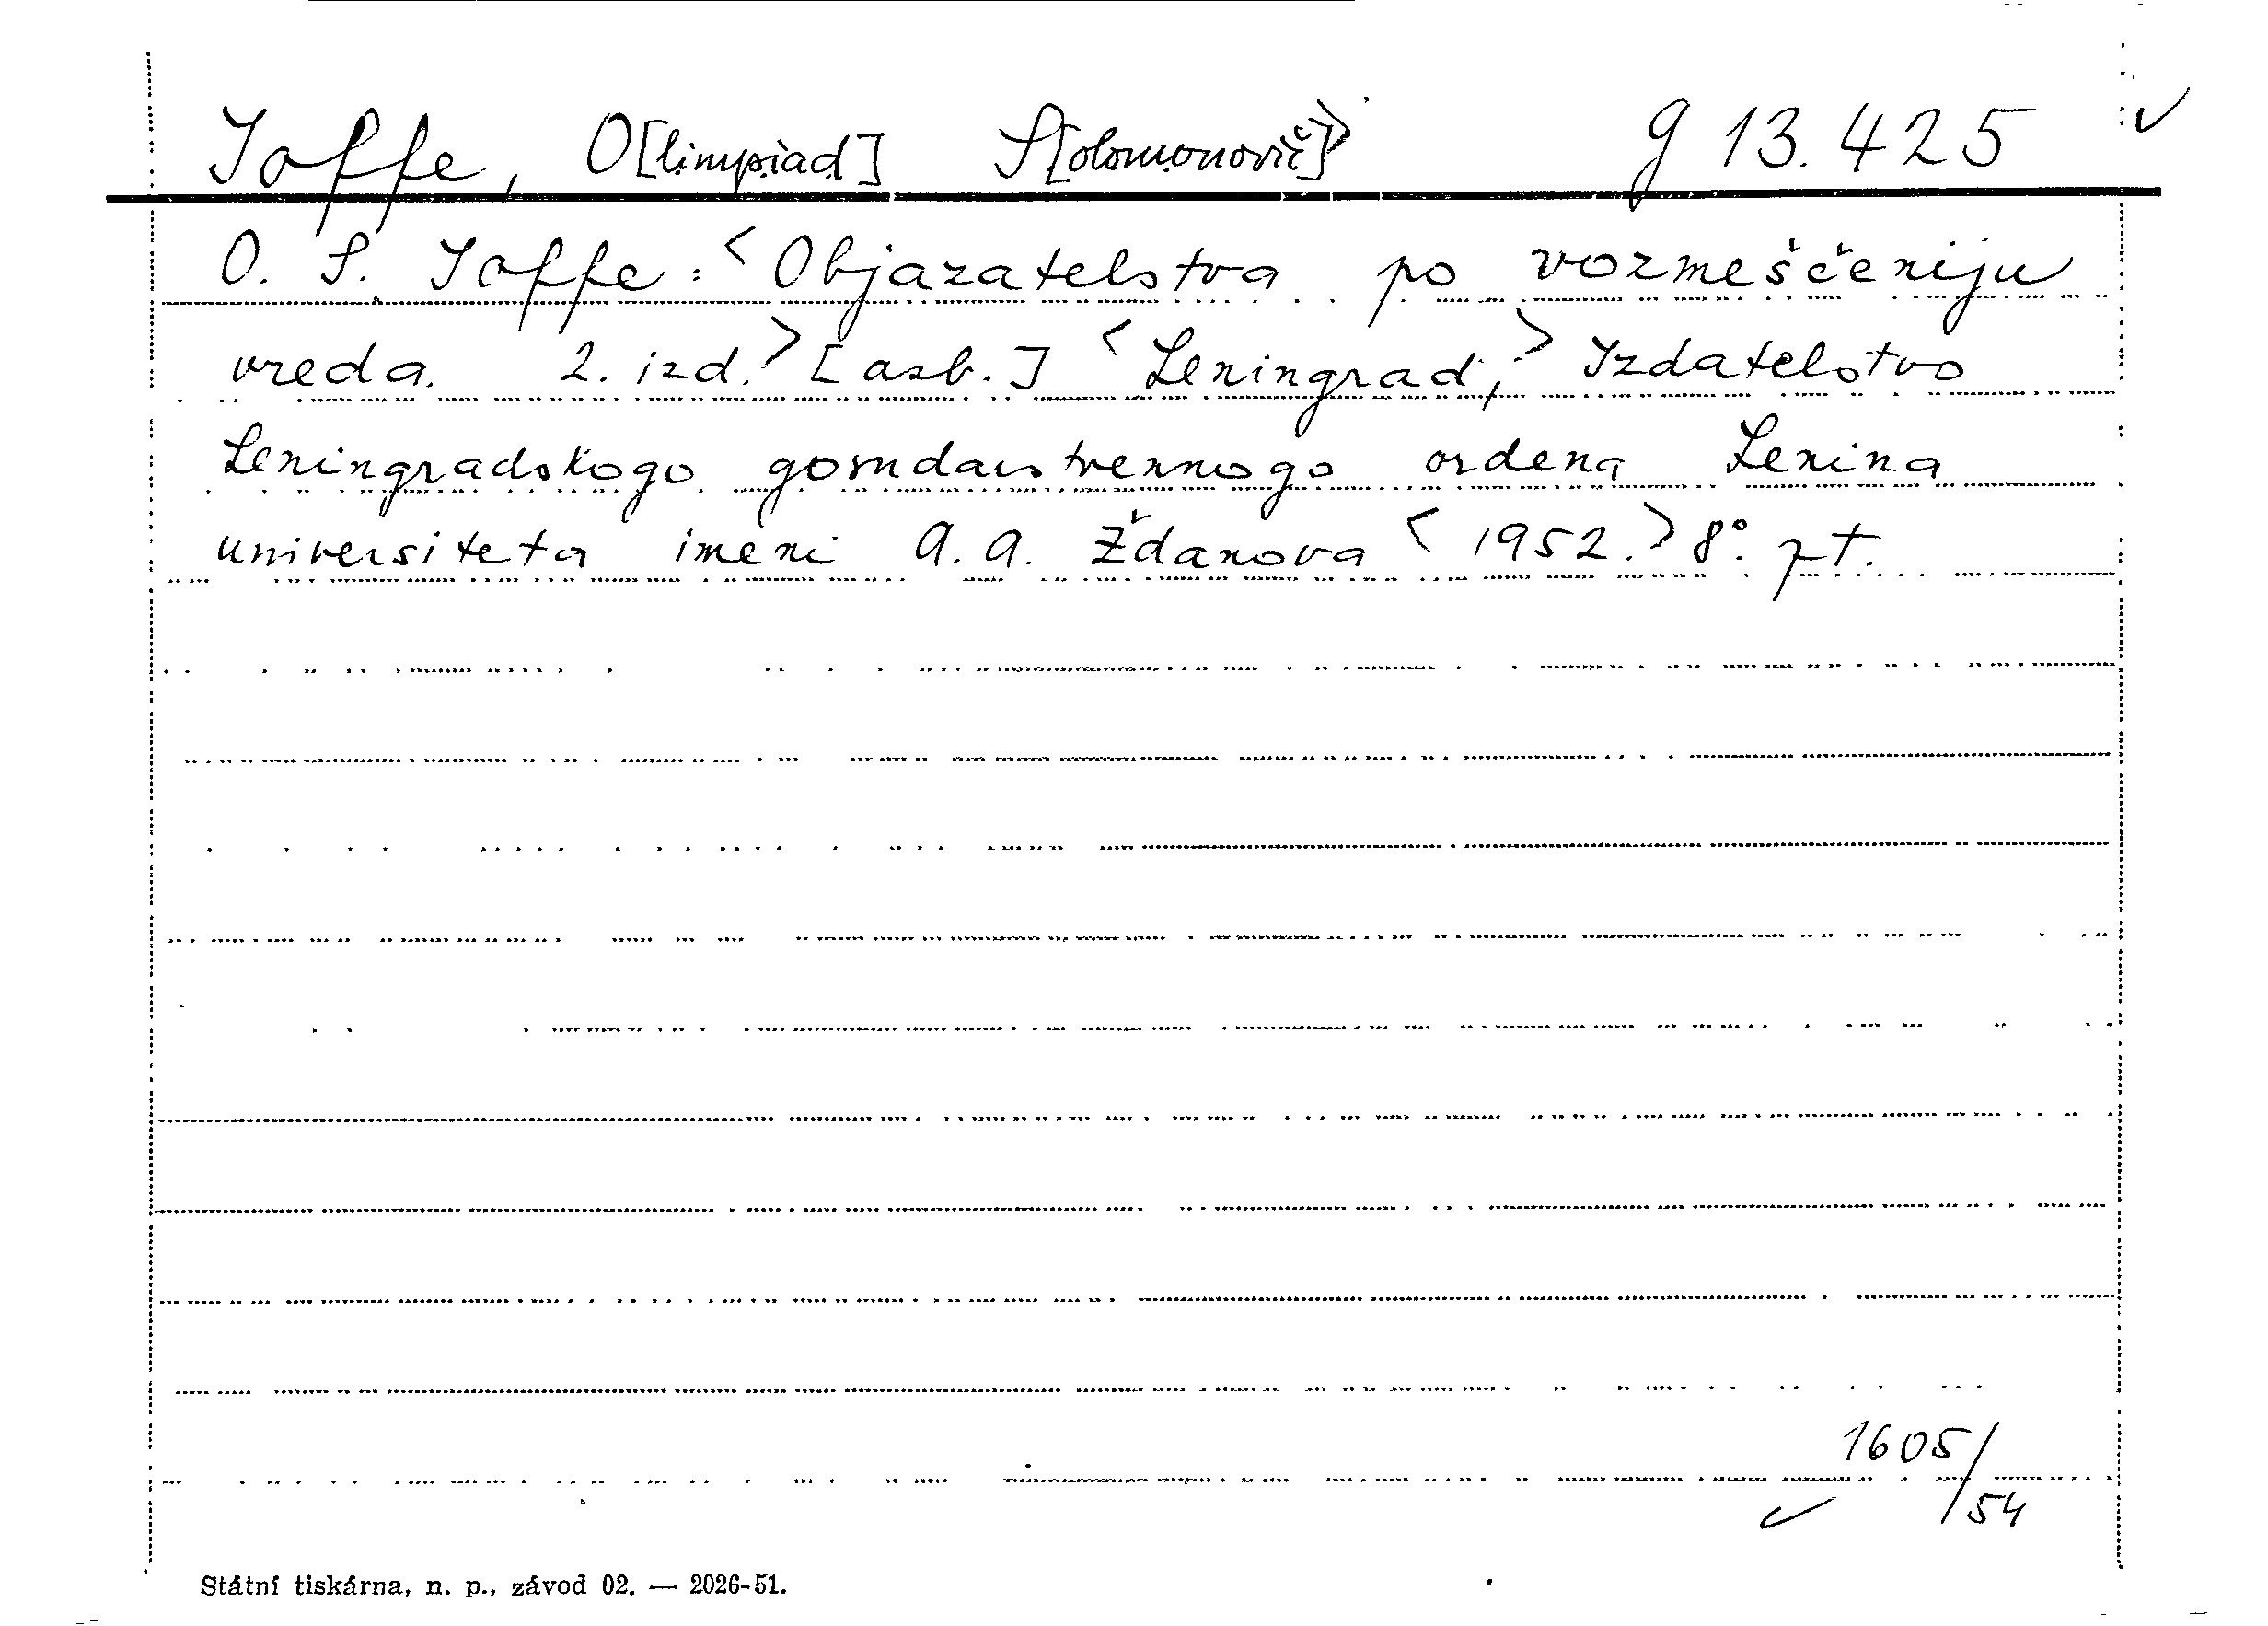 Joffe, O[limpiad] S[olomonovič]> g 13.425 ✓
O. S. Joffe: <Objazatelstva po vozmeščeniju
vreda. 2. izd.> [azb.] <Leningrad,> Izdatelstvo
Leningradskogo gosudarstvennogo ordena Lenina
universiteta imeni A. A. Ždanova <1952.> 8°. pt.
1605/54
✓
Státní tiskárna, n. p., závod 02. — 2026-51.